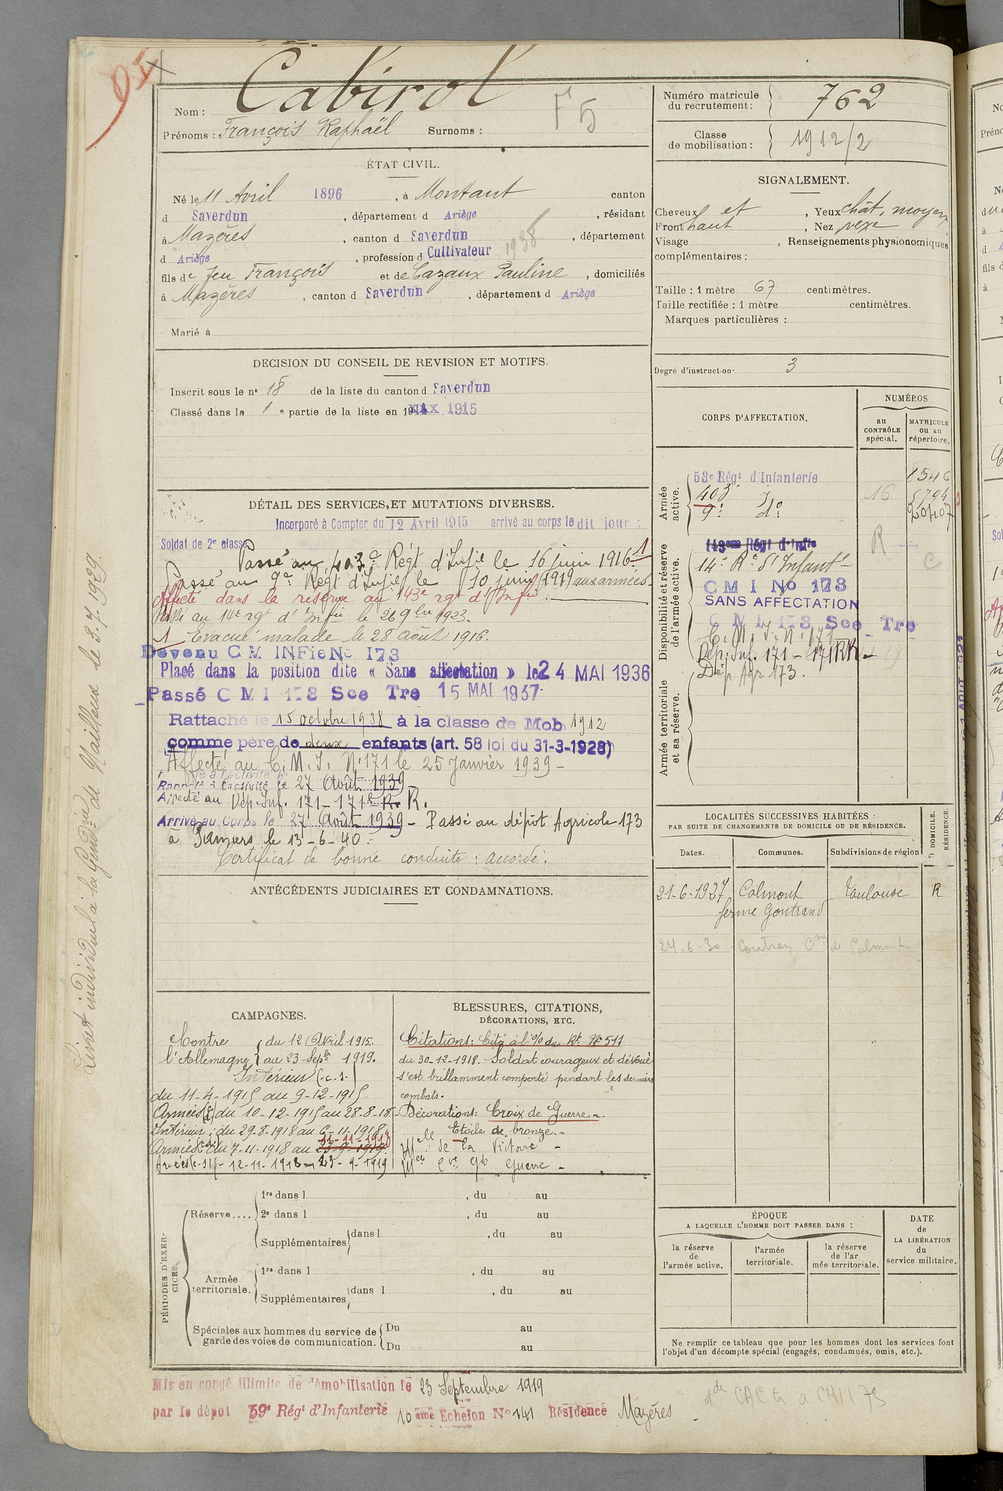 Cabirol
Nom :
Prénoms : François Raphaël Surnoms :
F 5
Numéro matricule du recrutement : 762
Classe de mobilisation : 1912/2
ÉTAT CIVIL.
Né le 11 Avril 1896, à Montaut canton
d Saverdun, département d Ariège, résidant
à Mazères, canton d Saverdun, département
d Ariège, profession d Cultivateur 1938
fils de feu François et de Cazaux Pauline, domiciliés
à Mazères, canton d Saverdun, département d Ariège
Marié à
SIGNALEMENT.
Cheveux et, Yeux chât. moyen
Front haut, Nez vexe
Visage, Renseignements physionomiques
complémentaires :
Taille : 1 mètre 67 centimètres.
Taille rectifiée : 1 mètre centimètres.
Marques particulières :
Degré d'instruction 3
DECISION DU CONSEIL DE REVISION ET MOTIFS.
Inscrit sous le nº 18 de la liste du canton d Saverdun
Classé dans la 1 e partie de la liste en 19 1915
DÉTAIL DES SERVICES ET MUTATIONS DIVERSES.
Incorporé à Compter du 12 Avril 1915 arrivé au corps le dit jour
Soldat de 2e classe
Passé au 403e Régt d'Infie le 16 juin 1916. 1
Passé au 9e Régt d'Infie le 10 juin 1919 aux armées
Affecté dans la réserve au 143e rgt d'Infie.
Passé au 14e rgt d'Infie le 26 9bre 1923.
1 Evacué malade le 28 août 1916.
Devenu C M INFie No 173
Placé dans la position dite « Sans affectation » le 24 MAI 1936
Passé C M I 178 Sce Tre 15 MAI 1937
Rattaché le 15 octobre 1938 à la classe de Mob 1912
comme père de deux enfants (art. 58 loi du 31-3-1928)
Affecté au C. M. I. Nº 171 le 25 Janvier 1939 -
Rappelé à l'activité le 27 Août 1939
Affecté au Dép. Inf. 171 - 171e R. R.
Arrivé au Corps le 27 Août 1939 - Passé au dépôt Agricole 173
à Pamiers le 13-6-40.
Certificat de bonne conduite : accordé.
CORPS D'AFFECTATION.
NUMÉROS
au CONTRÔLE spécial.
MATRICULE ou au répertoire.
Armée active.
53e Régt d'Infanterie 1546
403e do 16 5794
9e do
Disponibilité et réserve de l'armée active.
143eme Régt d'Infie R
14e Rt d'Infant C
C M I No 178
SANS AFFECTATION
C M I 178 Sce Tre
C. M. I. Nº 171
Dép. Inf. 171 - 171 RR -
Dép Agr 173.
Armée territoriale et sa réserve.
LOCALITÉS SUCCESSIVES HABITÉES
PAR SUITE DE CHANGEMENTS DE DOMICILE OU DE RÉSIDENCE.
Dates. Communes. Subdivisions de région D DOMICILE. RÉSIDENCE.
21-6-1927 Calmont Toulouse R
ferme Gontrand
24.6.30 de Calmont
ANTÉCÉDENTS JUDICIAIRES ET CONDAMNATIONS.
CAMPAGNES.
Contre l'Allemagne du 12 Avril 1915 au 23 Sepbre 1919.
Intérieur (c.s.)
du 11-4-1915 au 9-12-1915
Armées du 10-12-1915 au 28-8-18
Intérieur : du 29-8-1918 au 6-11-1918
Armées du 7-11-1918 au 11-11-1918
Armées 12-11-1918 au 23-9-1919
BLESSURES, CITATIONS,
DÉCORATIONS, ETC.
Citations : Cité à l'o/ du Rt Nº 511
du 30-12-1918. Soldat courageux et dévoué
s'est brillamment comporté pendant les derniers
combats.
Décorations : Croix de Guerre -
Etoile de bronze. -
Mlle de la Victoire -
Guerre -
PÉRIODES D'EXERCICES.
Réserve.... 1re dans l , du au
2e dans l , du au
Supplémentaires dans l , du au
Armée territoriale. 1re dans l , du au
Supplémentaires dans l , du au
Spéciales aux hommes du service de garde des voies de communication. Du au
Du au
ÉPOQUE
A LAQUELLE L'HOMME DOIT PASSER DANS :
la réserve de l'armée active.
l'armée territoriale.
la réserve de l'ar mée territoriale.
DATE DE LA LIBÉRATION du service militaire.
Ne remplir ce tableau que pour les hommes dont les services font
l'objet d'un décompte spécial (engagés, condamnés, omis, etc.).
Mis en congé illimité de démobilisation le 23 Septembre 1919
par le dépot 59e Régt d'Infanterie 10 eme Echelon No 141 Résidence Mazères